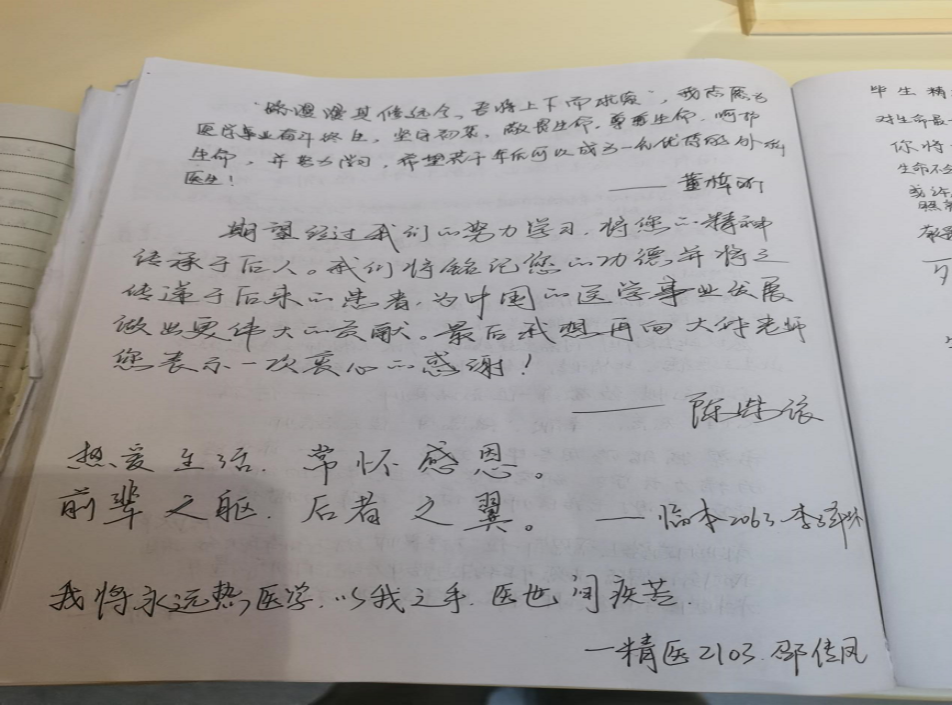 “路漫漫其修远兮，吾将上下而求索”，我志愿为
医学事业奋斗终生，坚守初衷，敬畏生命，尊重生命，呵护
生命，并努力学习，希望若干年后可以成为一名优秀的外科
医生！
期望经过我们的努力学习，将您的精神
传承于后人。我们将铭记您的功德并将之
传递于后来的患者，为中国的医学事业发展
做出更伟大的贡献。最后我想再向大体老师
您表示一次衷心的感谢！
热爱生活，常怀感恩。
前辈之躯，后者之翼。 ——临本2063
我将永远热医学，以我之手，医世间疾苦
—精医2103 邵佳风
毕生精
对生命最
你将
生命不